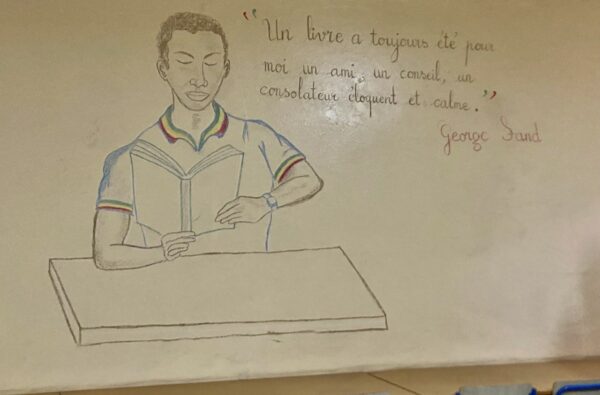 "Un livre a toujours été pour
moi un ami, un conseil, un
consolateur éloquent et calme."
George Sand